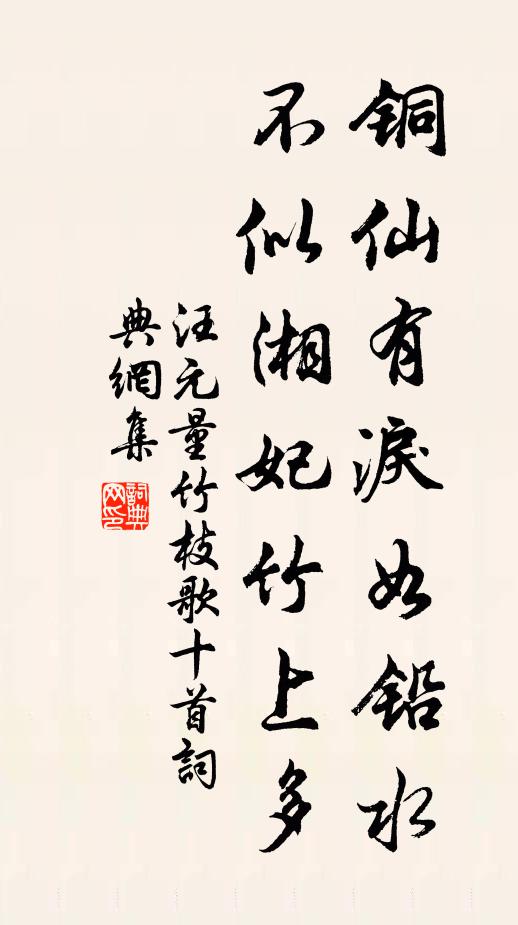 铜仙有淚如铅水
不似湘妃竹上多
汪元量竹枝歌十首詞
典網集
詞典
网印